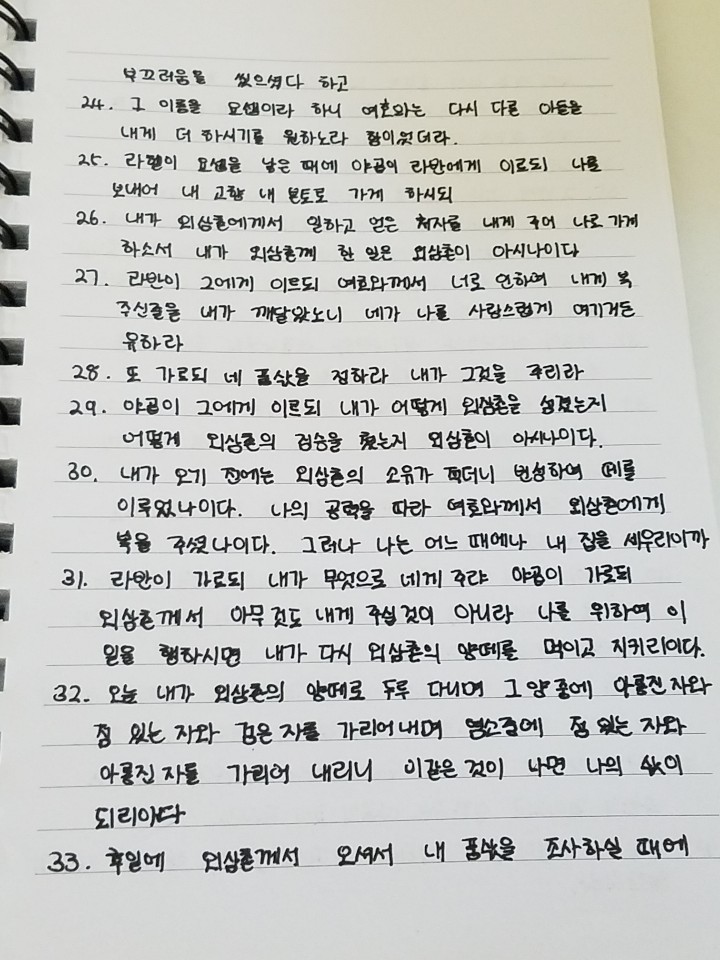 부끄러움을 씻으셨다 하고
24. 그 이름을 요셉이라 하니 여호와는 다시 다른 아들을
내게 더 하시기를 원하노라 함이었더라.
25. 라헬이 요셉을 낳은 때에 야곱이 라반에게 이르되 나를
보내어 내 고향 내 본토로 가게 하시되
26. 내가 외삼촌에게서 일하고 얻은 처자를 내게 주어 나로 가게
하소서 내가 외삼촌께 한 일은 외삼촌이 아시나이다
27. 라반이 그에게 이르되 여호와께서 너로 인하여 내게 복
주신줄을 내가 깨달았노니 네가 나를 사랑스럽게 여기거든
유하라
28. 또 가로되 네 품삯을 정하라 내가 그것을 주리라
29. 야곱이 그에게 이르되 내가 어떻게 외삼촌을 섬겼는지
어떻게 외삼촌의 짐승을 쳤는지 외삼촌이 아시나이다.
30. 내가 오기 전에는 외삼촌의 소유가 적더니 번성하여 떼를
이루었나이다. 나의 공력을 따라 여호와께서 외삼촌에게
복을 주셨나이다. 그러나 나는 어느 때에나 내 집을 세우리이까
31. 라반이 가로되 내가 무엇으로 네게 주랴 야곱이 가로되
외삼촌께서 아무 것도 내게 주실것이 아니라 나를 위하여 이
일을 행하시면 내가 다시 외삼촌의 양떼를 먹이고 지키리이다.
32. 오늘 내가 외삼촌의 양떼로 두루 다니며 그 양 중에 아롱진 자와
점 있는 자와 검은 자를 가리어내며 염소중에 점 있는 자와
아롱진 자를 가리어 내리니 이같은 것이 나면 나의 삯이
되리이다
33. 후일에 외삼촌께서 오셔서 내 품삯을 조사하실 때에